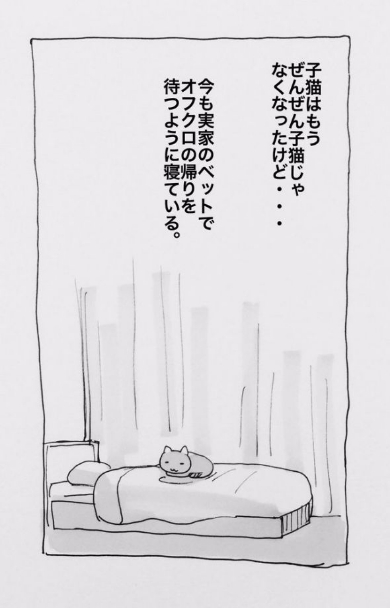 子猫はもう
ぜんぜん子猫じゃ
なくなったけど・・・
今も実家のベットで
オフクロの帰りを
待つように寝ている。